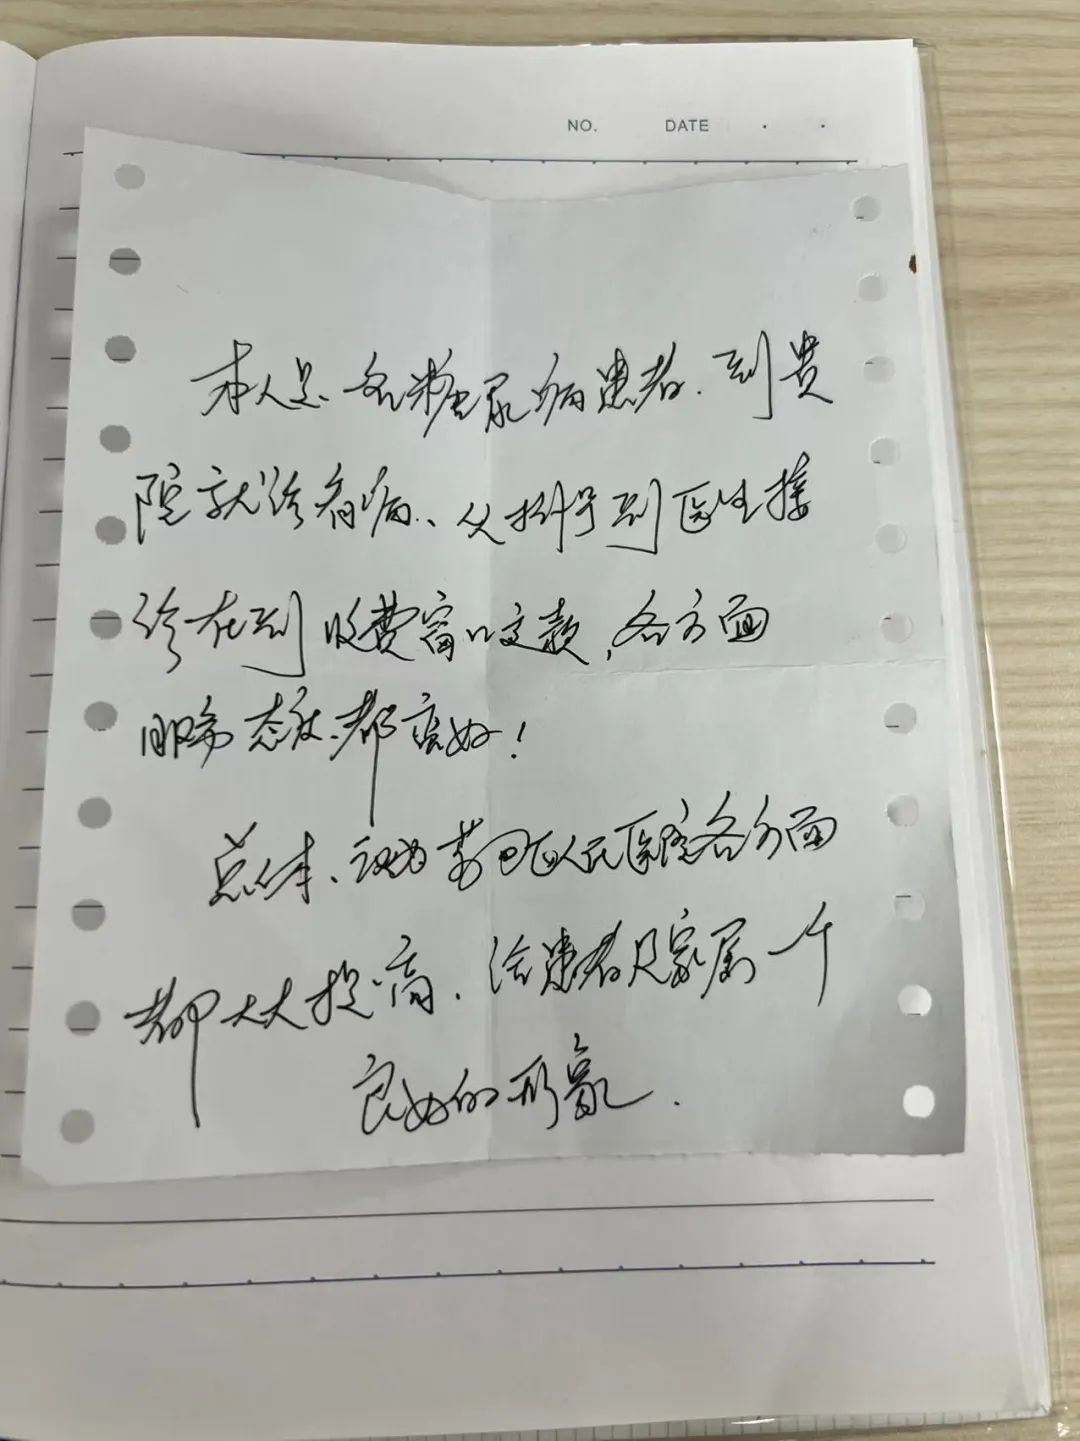 NO. DATE
本人是名糖尿病患者.到贵
院就诊看病、从挂号到医生接
诊在到收费窗口交款,各方面
服务态度都蛮好!
总体、认为区人民医院各方面
都大大提高.给患者及家属一个
良好的形象.